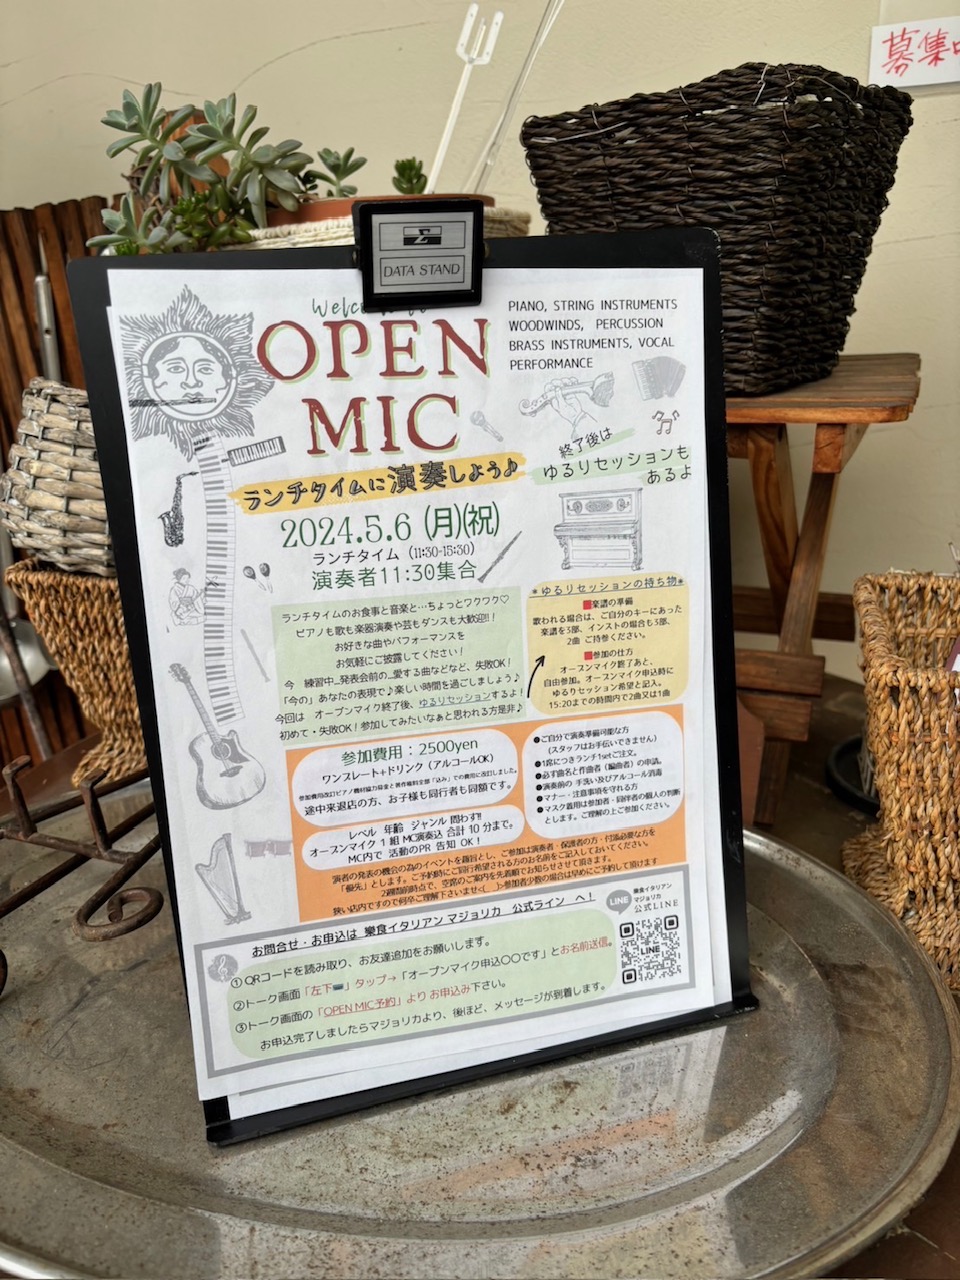 募集
Σ
DATA STAND
OPEN
MIC
PIANO, STRING INSTRUMENTS
WOODWINDS, PERCUSSION
BRASS INSTRUMENTS, VOCAL
PERFORMANCE
終了後は
ゆるりセッションも
あるよ
ランチタイムに演奏しよう♪
2024.5.6 (月)(祝)
ランチタイム (11:30-15:30)
演奏者11:30集合
ランチタイムのお食事と音楽と…ちょっとワクワク♡
ピアノも歌も楽器演奏や芸もダンスも大歓迎!!
お好きな曲やパフォーマンスを
お気軽にご披露してください!
今 練習中…発表会前の…愛する曲などなど、失敗OK!
「今の」あなたの表現で♪楽しい時間を過ごしましょう♪
今回は オープンマイク終了後、ゆるりセッションするよ!
初めて・失敗OK! 参加してみたいなぁと思われる方是非♪
*ゆるりセッションの持ち物*
■楽譜の準備
歌われる場合は、ご自分のキーにあった
楽譜を3部、インストの場合も3部、
2曲 ご持参ください。
■参加の仕方
オープンマイク終了あと、
自由参加。オープンマイク申込時に
ゆるりセッション希望と記入。
15:20までの時間内で2曲又は1曲
参加費用:2500yen
ワンプレート+ドリンク (アルコールOK)
参加費用改訂ピアノ機材協力募金と著作権料全部「込み」での費用に改訂しました。
途中来退店の方、お子様も同行者も同額です。
レベル 年齢 ジャンル 問わず!!
オープンマイク 1 組 MC演奏込 合計 10 分まで。
MC内で 活動のPR 告知 OK!
●ご自分で演奏準備可能な方
(スタッフはお手伝いできません)
●1席につきランチ1setご注文。
●必ず曲名と作曲者(編曲者)の申請。
●演奏前の 手洗い及びアルコール消毒
●マナー・注意事項を守れる方
●マスク着用は参加者・同伴者の個人の判断
とします。ご理解の上ご参加ください。
演者の発表の機会の為のイベントを趣旨とし、ご参加は演奏者・保護者の方・付添必要な方を
「優先」とします。ご予約時にご同行希望される方のお名前をご記入しておいてください。
2週間前時点で、空席のご案内を先着順でお知らせさせて頂きます。
狭い店内ですので何卒ご理解下さいませ<(_ _)>参加者少数の場合は早めにご予約して頂けます
お問合せ・お申込は 樂食イタリアン マジョリカ 公式ライン へ!
LINE
樂食イタリアン
マジョリカ
公式LINE
LINE
①QRコードを読み取り、お友達追加をお願いします。
②トーク画面「左下」タップ→「オープンマイク申込〇〇です」とお名前送信。
③トーク画面の「OPEN MIC予約」よりお申込み下さい。
お申込完了しましたらマジョリカより、後ほど、メッセージが到着します。